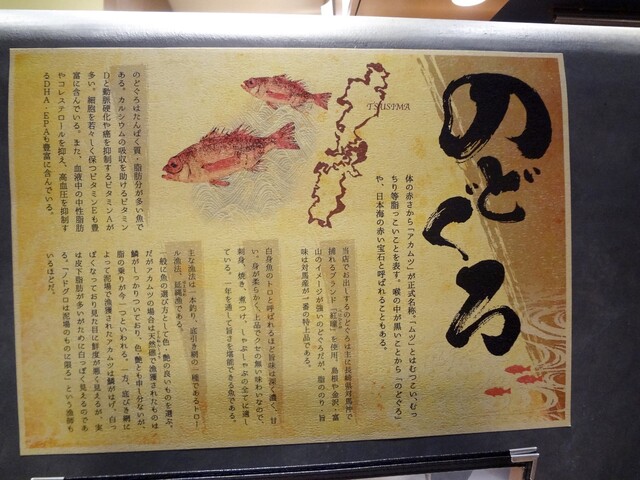 のどぐろ
体の赤さから「アカムツ」が正式名称。「ムツ」とはむつこい、むっ
ちり等脂っこいことを表す。喉の中が黒いことから「のどぐろ」
や、日本海の赤い宝石と呼ばれることもある。
TSUSIMA
当店でお出しするのどぐろは主に長崎県対馬沖で
捕れるブランド「紅瞳」を使用。島根や金沢、富
山のイメージが強いのどぐろだが、脂ののり、旨
味は対馬産が一番の特上品である。
白身魚のトロと呼ばれるほど旨味は深く濃く、甘
い。身が柔らかく、上品でクセの無い味わいなので、
刺身、焼き、煮つけ、しゃぶしゃぶの全てに適し
ている。一年を通して旨さを堪能できる魚である。
主な漁法は一本釣り、底引き網の一種であるトロー
ル漁法、延縄漁である。
一般に魚の選び方として色、艶の良いものを選ぶ。
だがアカムツの場合は天然礁で漁獲されたものは
鱗がしっかりついており、色、艶とも申し分ないが、
脂の乗りが今一つといわれる。一方、底びき網に
よって泥場で漁獲されたアカムツは鱗がはげ、白っ
ぽくなっており見た目に鮮度が悪く見えるが、実
は皮下脂肪が多いがために白っぽく見えるのであ
る。「ノドグロは泥場のものに限る」という漁師も
いるほどだ。
のどぐろはたんぱく質・脂肪分が多い魚で
ある。カルシウムの吸収を助けるビタミン
Dと動脈硬化や癌を抑制するビタミンAが
多い。細胞を若々しく保つビタミンEも豊
富に含んでいる。また、血液中の中性脂肪
やコレステロールを抑え、高血圧を抑制す
るDHA・EPAも豊富に含んでいる。